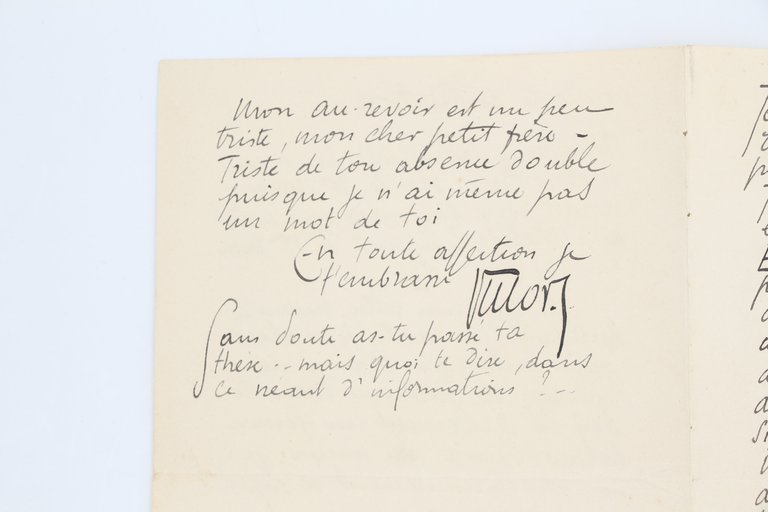 Mon au-revoir est un peu
triste, mon cher petit frère -
Triste de ton absence double
puisque je n'ai même pas
un mot de toi
En toute affection je
t'embrasse Victor.
Sans doute as-tu passé ta
thèse -- mais quoi te dire, dans
ce néant d'informations ? --